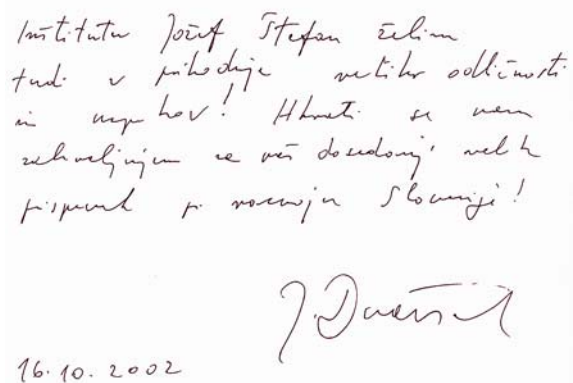 Inštitutu Jožef Štefan želim
tudi v prihodnje veliko odličnosti
in uspehov! Hkrati se vam
zahvaljujem za vaš dosedanji velik
prispevek pri razvoju Slovenije!
J. Drnovšek
16.10.2002